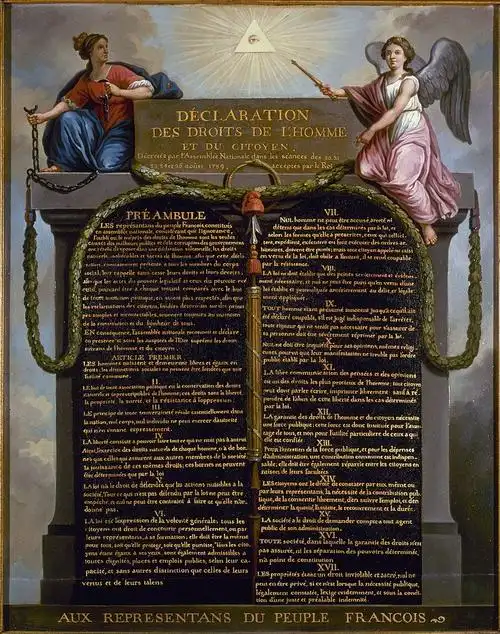 DÉCLARATION
DES DROITS DE L'HOMME
ET DU CITOYEN,
Décrétés par l'Assemblée Nationale dans les séances des 20, 21
23, 24 et 26 août 1789, acceptés par le Roi
PRÉAMBULE
LES représentans du peuple François, constitués
en assemblée nationale, considérant que l'ignorance,
l'oubli ou le mépris des droits de l'homme sont les seules
causes des malheurs publics et de la corruption des gouvernemens
ont résolu d'exposer dans une déclaration solemnelle, les droits
naturels, inaliénables et sacrés de l'homme; afin que cette décla-
ration, constamment présente à tous les membres du corps
social, leur rappelle sans cesse leurs droits et leurs devoirs;
afin que les actes du pouvoir législatif et ceux du pouvoir exé-
cutif, pouvant être à chaque instant comparés avec le but
de toute institution politique, en soient plus respectés; afin que
les réclamations des citoyens, fondées désormais sur des princi-
pes simples et incontestables, tournent toujours au maintien
de la constitution et du bonheur de tous.
EN conséquence, l'assemblée nationale reconnoît et déclare
en présence et sous les auspices de l'Être suprême les droits
suivans de l'homme et du citoyen.
ARTICLE PREMIER.
LES hommes naissent et demeurent libres et égaux en
droits; les distinctions sociales ne peuvent être fondées que sur
l'utilité commune.
II.
LE but de toute association politique est la conservation des droits
naturels et imprescriptibles de l'homme; ces droits sont la liberté
la propriété, la sureté, et la résistance à l'oppression.
III.
LE principe de toute souveraineté réside essentiellement dans
la nation, nul corps, nul individu ne peut exercer d'autorité
qui n'en émane expressément.
IV.
LA liberté consiste à pouvoir faire tout ce qui ne nuit pas à autrui
Ainsi, l'exercice des droits naturels de chaque homme, n'a de bor-
nes que celles qui assurent aux autres membres de la société
la jouissance de ces mêmes droits; ces bornes ne peuvent
être déterminées que par la loi
V.
LA loi n'a le droit de défendre que les actions nuisibles à la
société. Tout ce qui n'est pas défendu par la loi ne peut être
empêché, et nul ne peut être contraint à faire ce qu'elle n'or-
donne pas.
VI.
LA loi est l'expression de la volonté générale; tous les
citoyens ont droit de concourir personnellement, ou par
leurs représentans, à sa formation; elle doit être la même
pour tous, soit qu'elle protege, soit qu'elle punisse. Tous les cito-
yens étant égaux à ses yeux, sont également admissibles à
toutes dignités, places et emplois publics, selon leur ca-
pacité, et sans autres distinction que celles de leurs
vertus et de leurs talens
VII.
NUL homme ne peut être accusé, arrêté ni
détenu que dans les cas déterminés par la loi, et
selon les formes qu'elle a prescrites, ceux qui sollici-
tent, expédient, exécutent ou font exécuter des ordres ar-
bitraires, doivent être punis; mais tout citoyen appelé ou saisi
en vertu de la loi, doit obéir à l'instant, il se rend coupable
par la résistance.
VIII.
LA loi ne doit établir que des peines strictement et évidem-
ment nécessaire, et nul ne peut être puni qu'en vertu d'une
loi établie et promulguée antérieurement au délit, et légale-
ment appliquée.
IX.
TOUT homme étant présumé innocent jusqu'à ce qu'il ait
été déclaré coupable, s'il est jugé indispensable de l'arrêter,
toute rigueur qui ne serait pas nécessaire pour s'assurer de
sa personne doit être sévèrement réprimée par la loi.
X.
NUL ne doit être inquiété pour ses opinions, mêmes reli-
gieuses pourvu que leur manifestation ne trouble pas l'ordre
public établi par la loi.
XI.
LA libre communication des pensées et des opinions
est un des droits les plus précieux de l'homme; tout citoyen
peut donc parler, écrire, imprimer librement; sauf à ré-
pondre de l'abus de cette liberté dans les cas déterminés
par la loi.
XII.
LA garantie des droits de l'homme et du citoyen nécessite
une force publique; cette force est donc instituée pour l'avan-
tage de tous, et non pour l'utilité particulière de ceux a qui
elle est confiée.
XIII.
Pour l'entretien de la force publique, et pour les dépenses
d'administration, une contribution commune est indispen-
sable; elle doit être également répartie entre les citoyens
raison de leurs facultées
XIV.
LES citoyens ont le droit de constater par eux même ou
par leurs représentans, la nécessité de la contribution pub-
lique, de la consentir librement, d'en suivre l'emploi, et d'en
déterminer la quotité, l'assiette, le recouvrement et la durée.
XV.
LA société a le droit de demander compte a tout agent
public de son administration.
XVI.
TOUTE société, dans laquelle la garantie des droits n'est
pas assurée, ni les séparation des pouvoirs déterminée,
n'a point de constitution
XVII.
LES propriétés étant un droit inviolable et sacré, nul ne
peut en être privé, si ce n'est lorsque la nécessité publique,
légalement constatée, l'exige evidemment, et sous la condi-
tion d'une juste et préalable indemnité.
AUX REPRESENTANS DU PEUPLE FRANCOIS